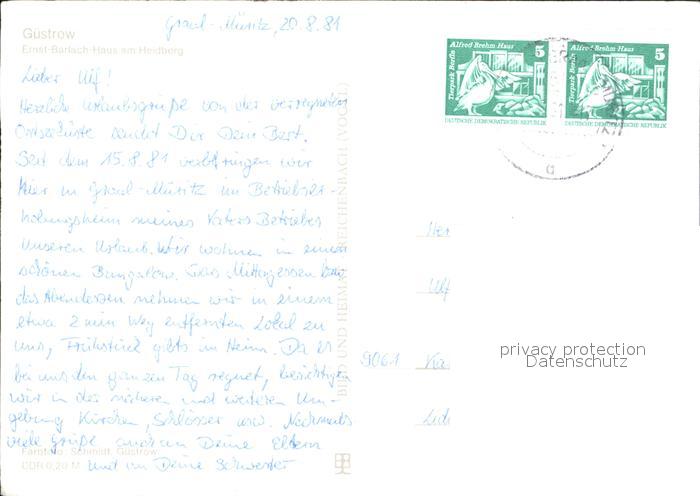 Güstrow
Ernst-Barlach-Haus am Heidberg
Graal-Müritz, 20.8.81
Lieber Ulf!
Herzliche Urlaubsgrüße von der verregneten
Ostseeküste sendet Dir Dein Bert.
Seit dem 15.8.81 verbringen wir
hier in Graal-Müritz im Betriebser-
holungsheim meines Vaters Betriebes
unseren Urlaub. Wir wohnen in einem
schönen Bungalow. Das Mittagessen bzw.
das Abendessen nehmen wir in einem
etwa 2 min Weg entfernten Lokal zu
uns, Frühstück gibts im Heim. Da es
bei uns den ganzen Tag regnet, besichtigen
wir in der näheren und weiteren Um-
gebung Kirchen, Schlösser usw. Nochmals
viele Grüße auch an Deine Eltern
und an Deine Schwester
Farbfoto: Schmidt, Güstrow
DDR 0,20 M
BILD UND HEIMAT REICHENBACH (VOGTL)
Tierpark Berlin
Alfred Brehm Haus
5
DEUTSCHE DEMOKRATISCHE REPUBLIK
Tierpark Berlin
Alfred Brehm Haus
5
DEUTSCHE DEMOKRATISCHE REPUBLIK
a
Her
Ulf
9061 Ka
privacy protection
Datenschutz